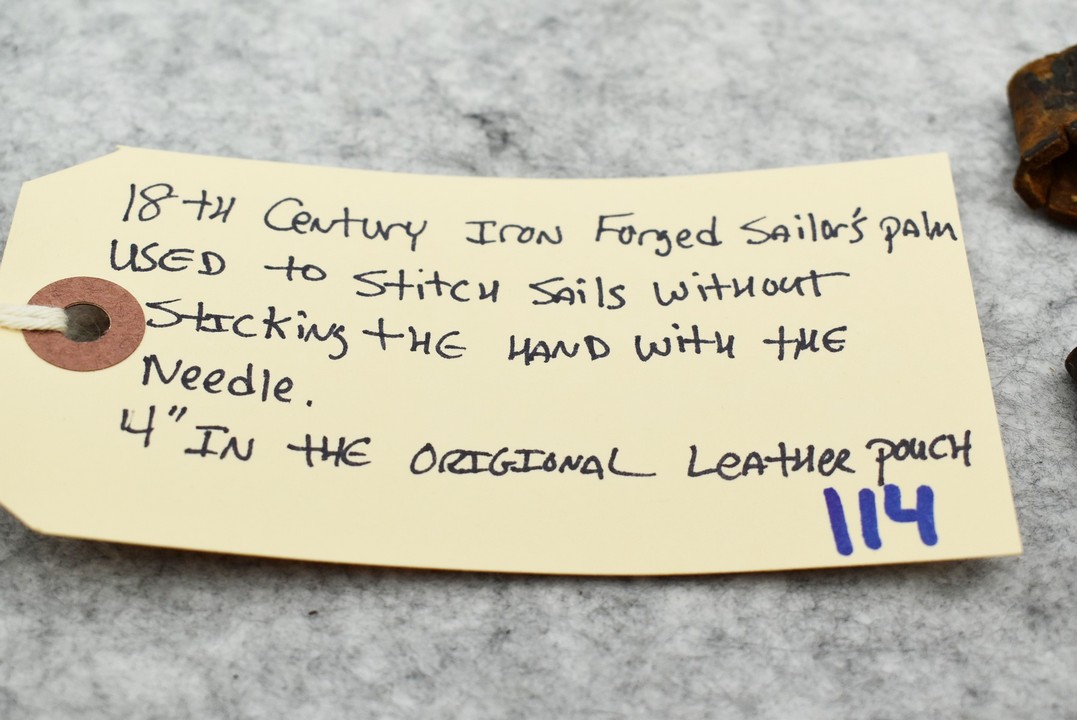 18TH Century Iron Forged Sailor's palm
USED to Stitch Sails without
Sticking THE HAND with THE
Needle.
4" IN THE ORIGIONAL Leather pouch
114